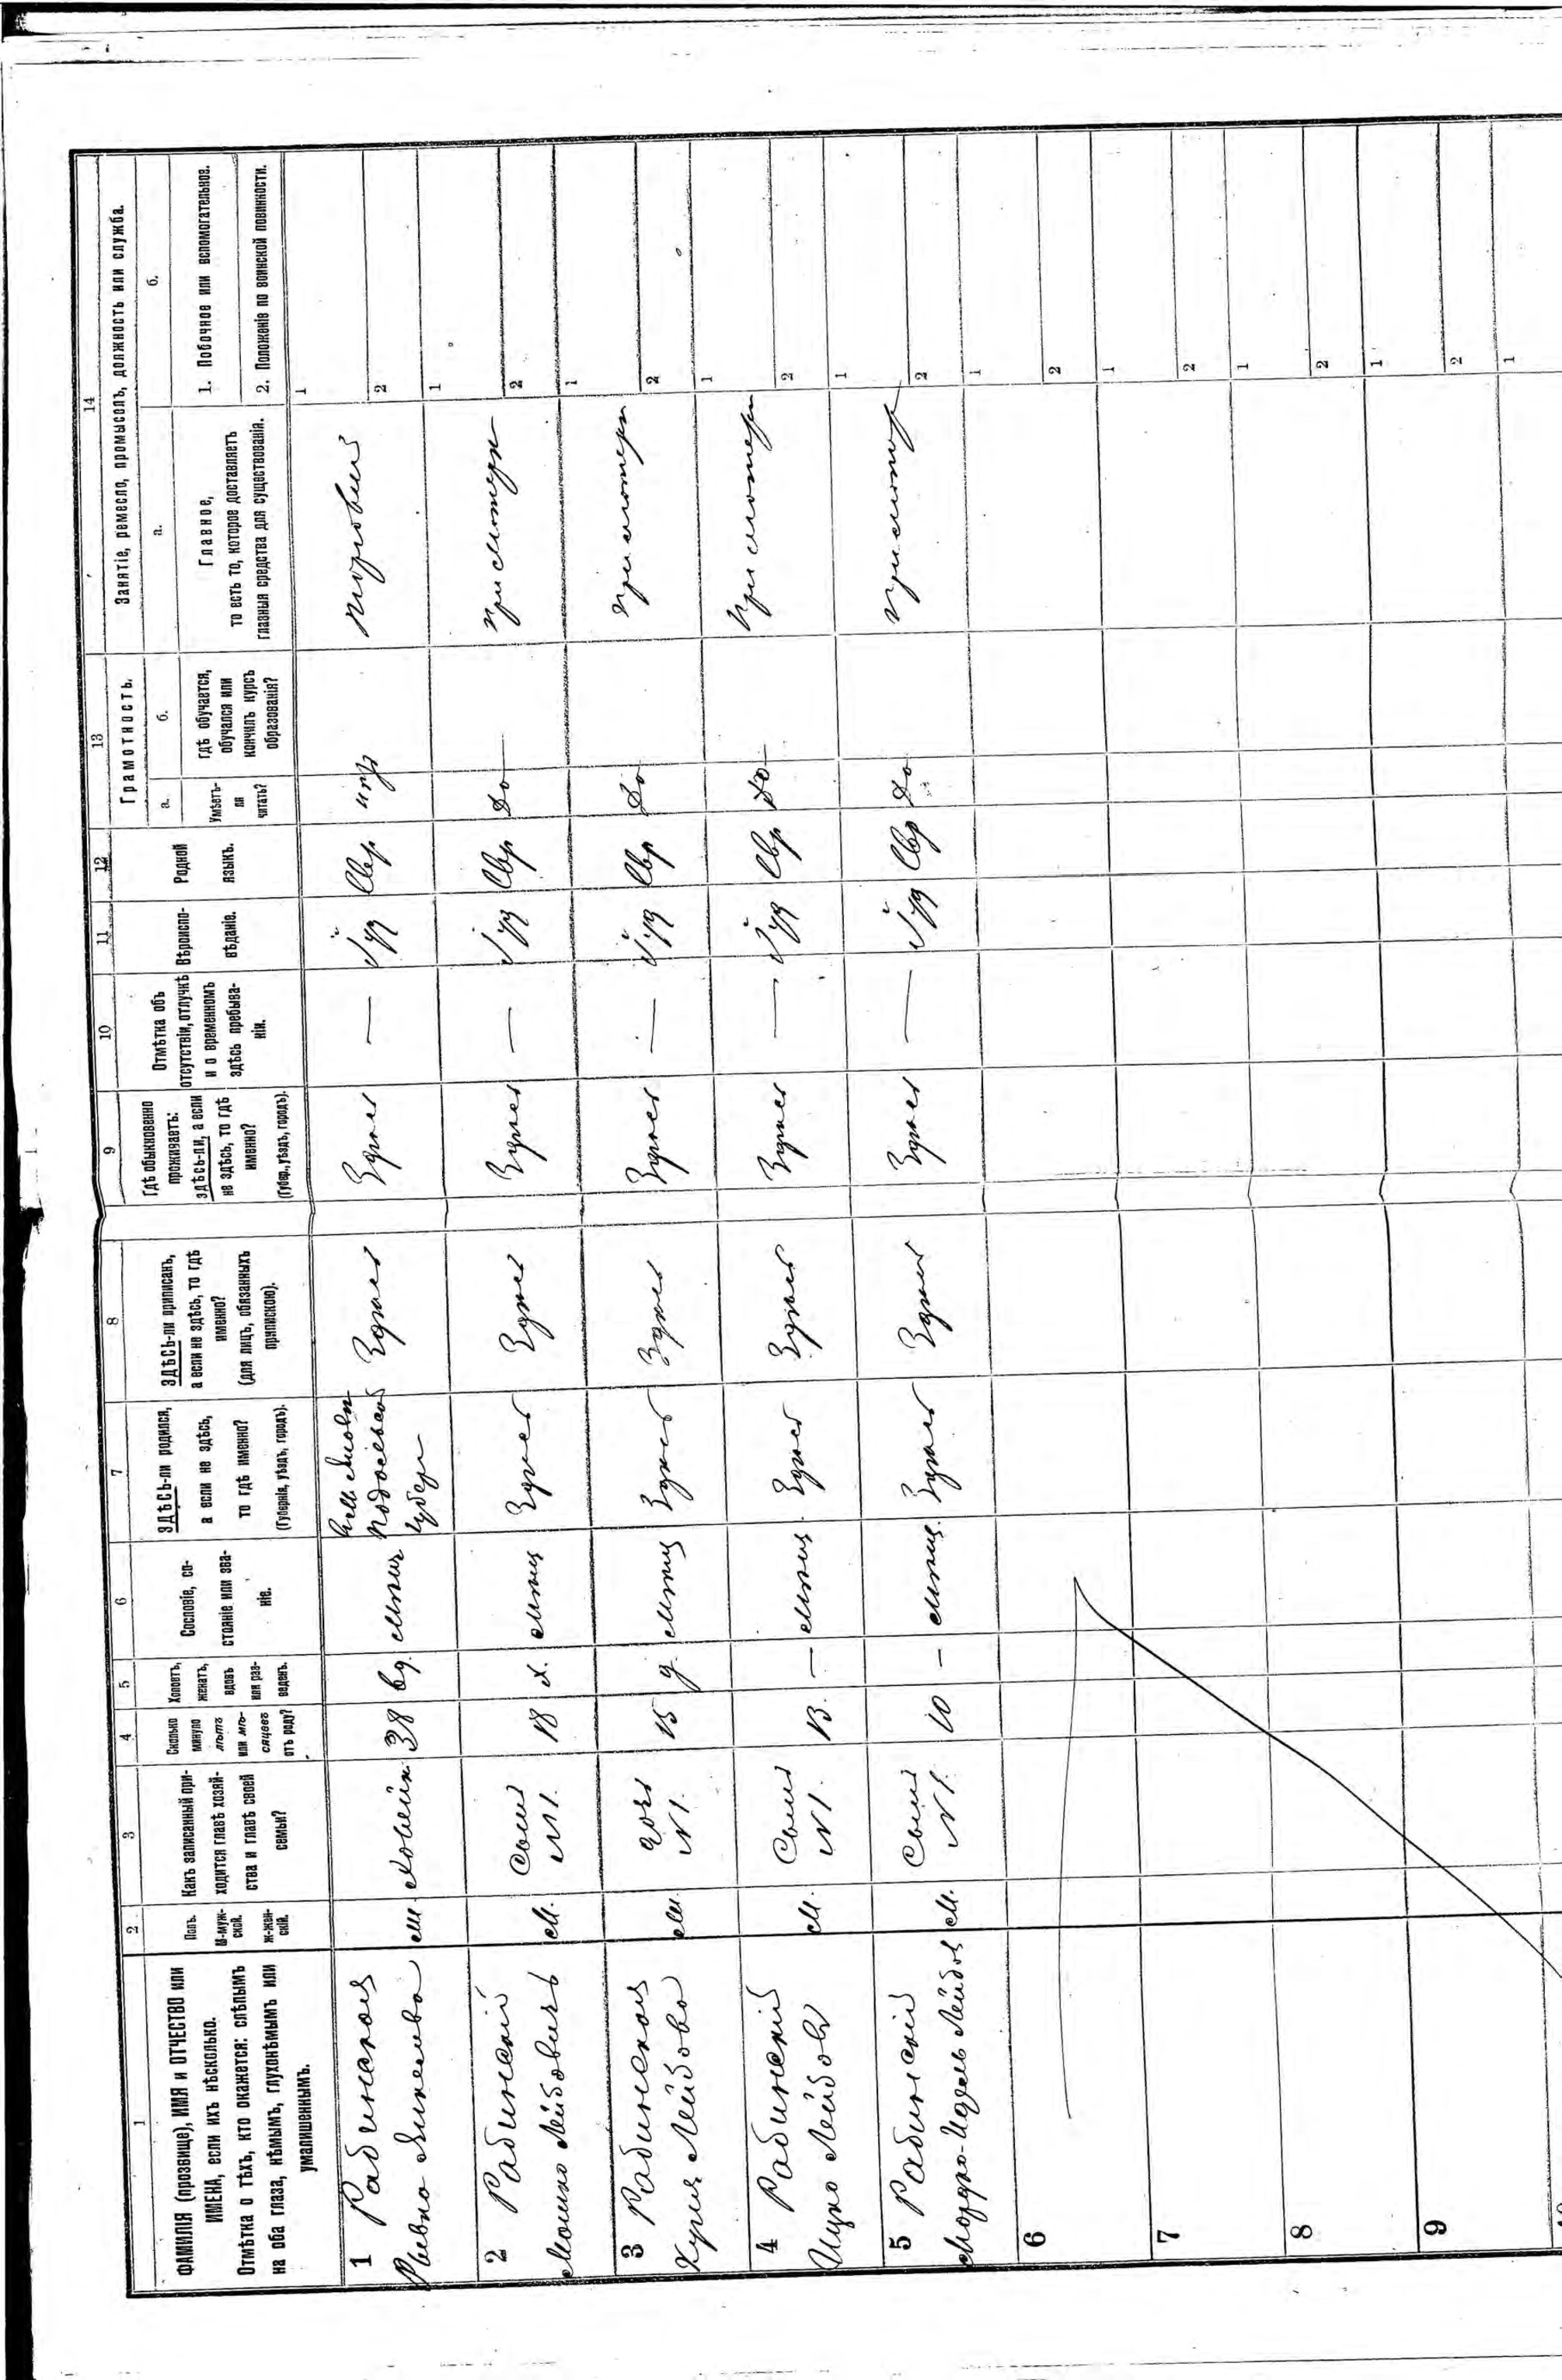 1
ФАМИЛІЯ (прозвище), ИМЯ и ОТЧЕСТВО или
ИМЕНА, если ихъ нѣсколько.
Отмѣтка о тѣхъ, кто окажется: слѣпымъ
на оба глаза, нѣмымъ, глухонѣмымъ или
умалишеннымъ.
2
Полъ.
М-муж-
ской.
ж-жен-
скій.
3
Какъ записанный при-
ходится главѣ хозяй-
ства и главѣ своей
семьи?
4
Сколько
минуло
лѣтъ
или мѣ-
сяцевъ
отъ роду?
5
Холостъ,
женатъ,
вдовъ
или раз-
веденъ.
6
Сословіе, со-
стояніе или зва-
ніе.
7
ЗДѢСЬ-ли родился,
а если не здѣсь,
то гдѣ именно?
(Губернія, уѣздъ, городъ).
8
ЗДѢСЬ-ли приписанъ,
а если не здѣсь, то гдѣ
именно?
(для лицъ, обязанныхъ
припискою).
9
Гдѣ обыкновенно
проживаетъ:
здѣсь-ли, а если
не здѣсь, то гдѣ
именно?
(Губер., уѣздъ, городъ).
10
Отмѣтка объ
отсутствіи, отлучкѣ
и о временномъ
здѣсь пребыва-
ніи.
11
Вѣроиспо-
вѣданіе.
12
Родной
языкъ.
13
Грамотность.
а.
Умѣетъ-
ли
читать?
б.
гдѣ обучается,
обучался или
кончилъ курсъ
образованія?
14
Занятіе, ремесло, промыселъ, должность или служба.
а.
Главное,
то есть то, которое доставляетъ
главныя средства для существованія.
б.
1. Побочное или вспомогательное.
2. Положеніе по воинской повинности.
1 Рабинская
м. Хозяйк 38 вд. мѣщ
губер
Здѣсь Здѣсь — Іуд Евр
1
2
2 Рабинскій
Мошко Лейбовичъ
м. Сынъ
N 1.
18 х. мѣщ Здѣсь Здѣсь Здѣсь — Іуд Евр до при матери
1
2
3 Рабинская
Лейбова
м. дочь
N 1.
15 д. мѣщ Здѣсь Здѣсь Здѣсь — Іуд Евр до при матери
1
2
4 Рабинский
Ицко Лейбов
м. Сынъ
N 1.
13. — мѣщ. Здѣсь Здѣсь Здѣсь — Іуд Евр до при матери
1
2
5 Рабинский
Мордко-Идель Лейбов
м. Сынъ
N 1.
10 — мѣщ. Здѣсь Здѣсь Здѣсь — Іуд Евр до при матер
1
2
6
1
2
7
1
2
8
1
2
9
1
2
10
1